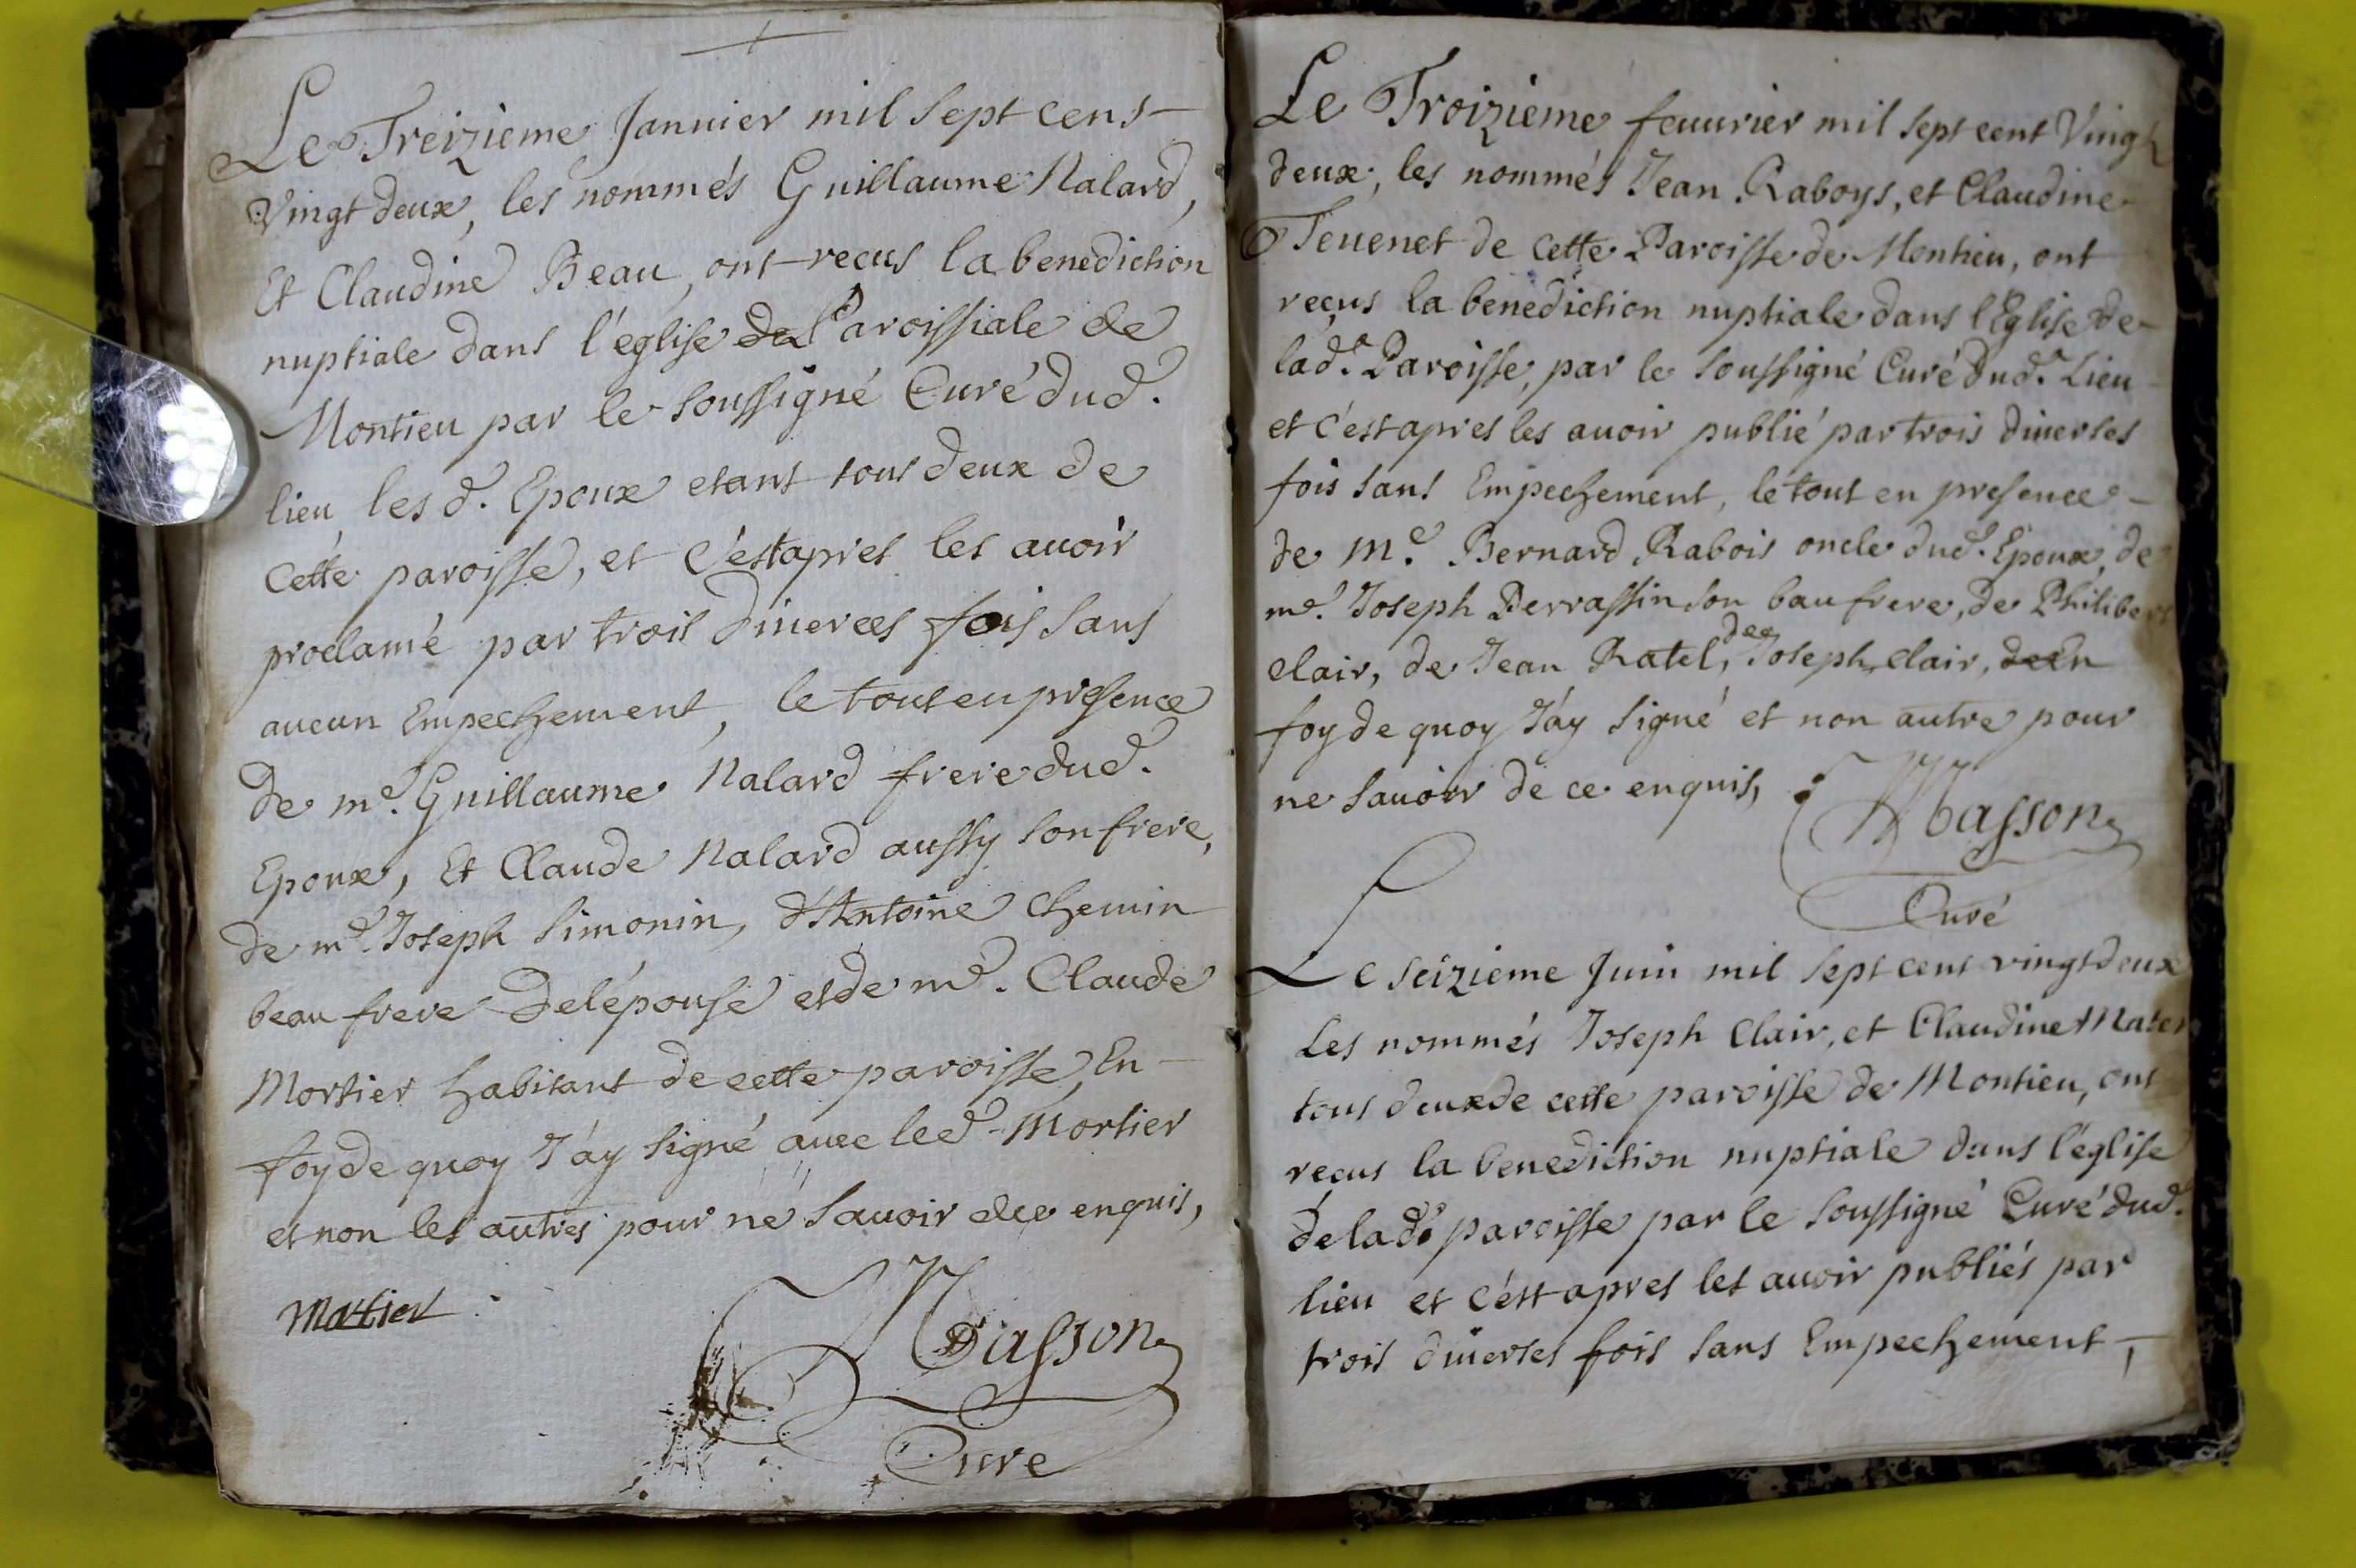 Le Treizieme Januier mil sept cens
Vingt deux, les nommés Guillaume Nalard,
Et Claudine Beau, ont recus la benediction
nuptiale dans l'eglise de Paroissiale de
Montieu par le soussigné Curé dud.
lieu les d. Epoux etant tous deux de
Cette paroisse, et c'est apres les auoir
proclamé par trois diuerces fois sans
aucun Empechement, le tout en presence
de me. Guillaume Nalard frere dud.
Epoux, Et Claude Nalard aussy son frere,
de me. Joseph Simonin, d'Antoine Chemin
beau frere de l'épouse et de me. Claude
Mortier habitant de cette paroisse, En
foy de quoy J'ay signé auec led. Mortier
et non les autres pour ne sauoir de ce enquis,
Mortier
Masson
Curé
Le Troizieme feuurier mil sept cent Vingt
deux, les nommés Jean Raboys, et Claudine
Teuenet de cette Paroisse de Montieu, ont
reçus la benediction nuptiale dans l'Eglise de
lade. Paroisse, par le soussigné Curé dud. Lieu
et c'est apres les auoir publié par trois diuerses
fois sans Empechement, le tout en presence
de Me. Bernard Rabois oncle dud. Epoux, de
me. Joseph Perrassin son baufrere, de Philibert
clair, de Jean Ratel, de Joseph clair, de En
foy de quoy J'ay signé et non autre pour
ne sauoir de ce enquis,
Masson
Curé
Le seizieme Juin mil sept cent vingt deux
Les nommés Joseph Clair, et Claudine
tous deux de cette paroisse de Montieu, ont
reçus la benediction nuptiale dans l'église
de lade. paroisse par le soussigné Curé dud.
lieu et c'est apres les auoir publiés par
trois diuerses fois sans Empechement,